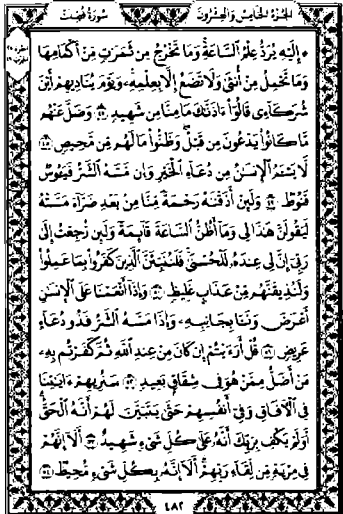 الجزء الخامس والعشرون
سورة فصلت
۞ إِلَيْهِ يُرَدُّ عِلْمُ السَّاعَةِ وَمَا تَخْرُجُ مِن ثَمَرَاتٍ مِّنْ أَكْمَامِهَا
وَمَا تَحْمِلُ مِنْ أُنثَىٰ وَلَا تَضَعُ إِلَّا بِعِلْمِهِ وَيَوْمَ يُنَادِيهِمْ أَيْنَ
شُرَكَائِي قَالُوا آذَنَّاكَ مَا مِنَّا مِن شَهِيدٍ ٤٧ وَضَلَّ عَنْهُم
مَّا كَانُوا يَدْعُونَ مِن قَبْلُ وَظَنُّوا مَا لَهُم مِّن مَّحِيصٍ ٤٨
لَّا يَسْأَمُ الْإِنسَانُ مِن دُعَاءِ الْخَيْرِ وَإِن مَّسَّهُ الشَّرُّ فَيَئُوسٌ
قَنُوطٌ ٤٩ وَلَئِنْ أَذَقْنَاهُ رَحْمَةً مِّنَّا مِن بَعْدِ ضَرَّاءَ مَسَّتْهُ
لَيَقُولَنَّ هَٰذَا لِي وَمَا أَظُنُّ السَّاعَةَ قَائِمَةً وَلَئِن رُّجِعْتُ إِلَىٰ
رَبِّي إِنَّ لِي عِندَهُ لَلْحُسْنَىٰ فَلَنُنَبِّئَنَّ الَّذِينَ كَفَرُوا بِمَا عَمِلُوا
وَلَنُذِيقَنَّهُم مِّنْ عَذَابٍ غَلِيظٍ ٥٠ وَإِذَا أَنْعَمْنَا عَلَى الْإِنسَانِ
أَعْرَضَ وَنَأَىٰ بِجَانِبِهِ وَإِذَا مَسَّهُ الشَّرُّ فَذُو دُعَاءٍ
عَرِيضٍ ٥١ قُلْ أَرَأَيْتُمْ إِن كَانَ مِنْ عِندِ اللَّهِ ثُمَّ كَفَرْتُم بِهِ
مَنْ أَضَلُّ مِمَّنْ هُوَ فِي شِقَاقٍ بَعِيدٍ ٥٢ سَنُرِيهِمْ آيَاتِنَا
فِي الْآفَاقِ وَفِي أَنفُسِهِمْ حَتَّىٰ يَتَبَيَّنَ لَهُمْ أَنَّهُ الْحَقُّ
أَوَلَمْ يَكْفِ بِرَبِّكَ أَنَّهُ عَلَىٰ كُلِّ شَيْءٍ شَهِيدٌ ٥٣ أَلَا إِنَّهُمْ
فِي مِرْيَةٍ مِّن لِّقَاءِ رَبِّهِمْ أَلَا إِنَّهُ بِكُلِّ شَيْءٍ مُّحِيطٌ ٥٤
٤٨٢